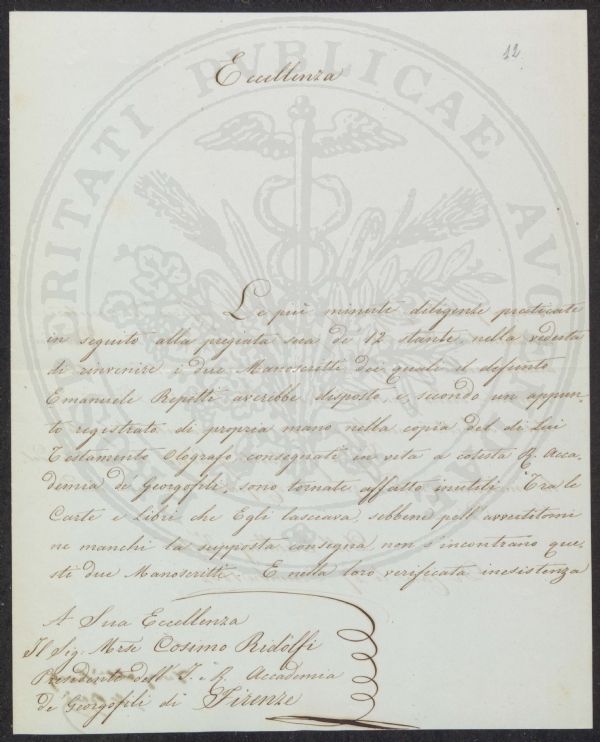 12
Eccellenza
PROSPERITATI PUBLICAE AUGENDAE
Le più minute diligenze praticate
in seguito alla pregiata sua de' 12 stante, nella veduta
di rinvenire i due Manoscritti dei quali il defunto
Emanuele Repetti averebbe disposto, e secondo un appun-
to registrato di propria mano nella copia del di Lui
Testamento Olografo consegnati in vita a cotesta R. Acca-
demia de Georgofili, sono tornate affatto inutili. Tra le
Carte e Libri che Egli lasciava, sebbene nell'
ne manchi la supposta consegna, non s'incontrano que-
sti due Manoscritti. E nella loro verificata inesistenza
A Sua Eccellenza
Il Sig. Mrse Cosimo Ridolfi
Presidente dell' I. e R. Accademia
de Georgofili di Firenze